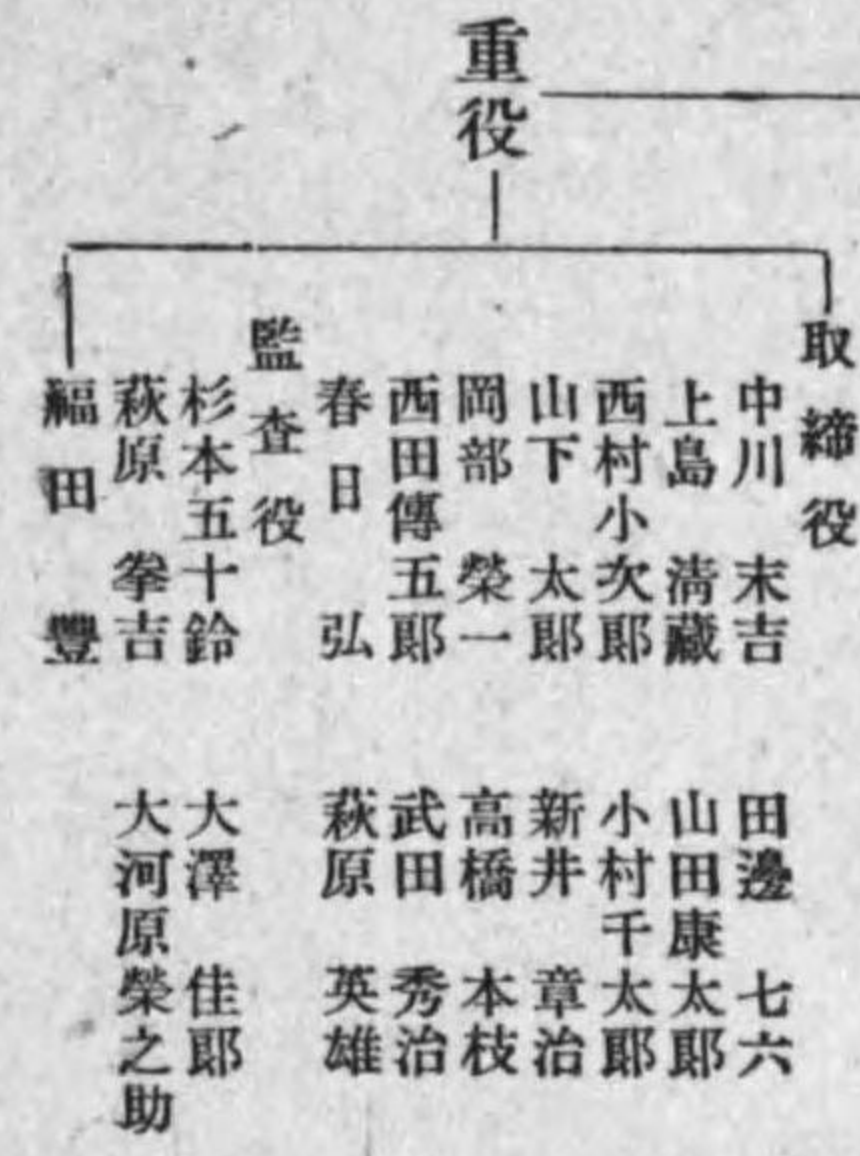 重役
取締役
中川末吉 田邊七六
上島淸藏 山田康太郎
西村小次郎 小村千太郎
山下太郎 新井章治
岡部榮一 高橋本枝
西田傳五郎 武田秀治
春日弘 萩原英雄
監査役
杉本五十鈴 大澤佳郎
萩原拳吉 大河原榮之助
福田豐